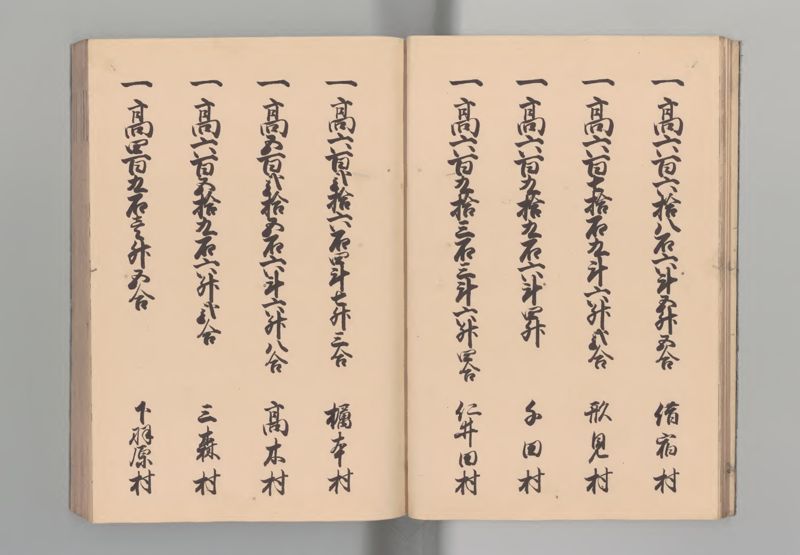 一高六百六拾八石六斗五升五合 借宿村
一高六百七拾石九斗六升弐合 形見村
一高六百九拾九石六斗四升 千田村
一高六百九拾三石三斗六升四合 仁井田村
一高六百弐拾六石四斗七升三合 橲本村
一高五百弐拾五石六斗六升八合 高木村
一高六百五拾九石六升弐合 三森村
一高四百九石壱升五合 下羽原村